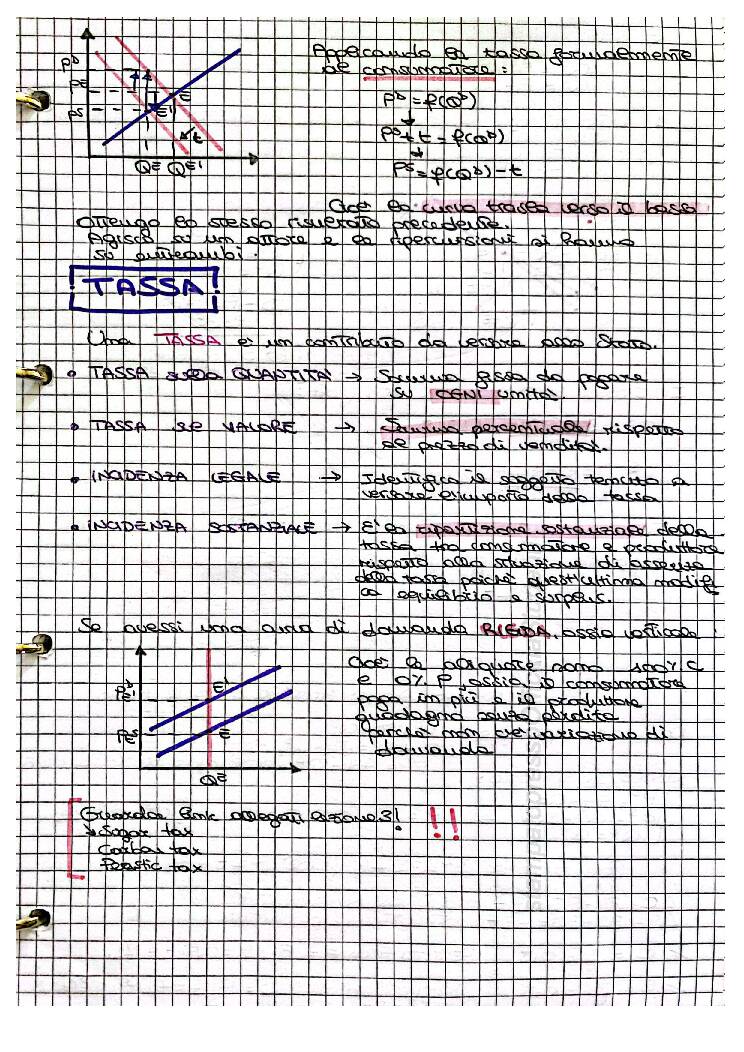 Applicando la tassa formalmente
al consumatore:
P^D = f(Q^D)
↓
P^S + t = f(Q^D)
↓
P^S = f(Q^D) - t
P^D
P^E
P^S
E
E'
t
Q^E Q^E'
Qui la curva trasla verso il basso
Ottengo lo stesso risultato precedente.
Agisco su un attore e le ripercussioni si hanno
su entrambi.
TASSA
Una TASSA è un contributo da versare allo Stato.
• TASSA sulla QUANTITÀ → Somma fissa da pagare
su OGNI unità.
• TASSA sul VALORE → Somma percentuale rispetto
al prezzo di vendita.
• INCIDENZA LEGALE → Identifica il soggetto tenuto a
versare l'importo della tassa
• INCIDENZA SOSTANZIALE → È la ripartizione sostanziale della
tassa tra consumatore e produttore
rispetto alla situazione di assenza
della tassa poiché quest'ultima modifi
ca equilibrio e surplus.
Se avessi una curva di domanda RIGIDA, ossia verticale
Qui le aliquote sono 100% C
e 0% P, ossia il consumatore
paga in più e il produttore
guadagna senza perdite
perché non c'è variazione di
domanda
E'
E
Q^E
Guarda link allegati lezione 3! !!
↓ Sugar tax
Carbon tax
Plastic tax